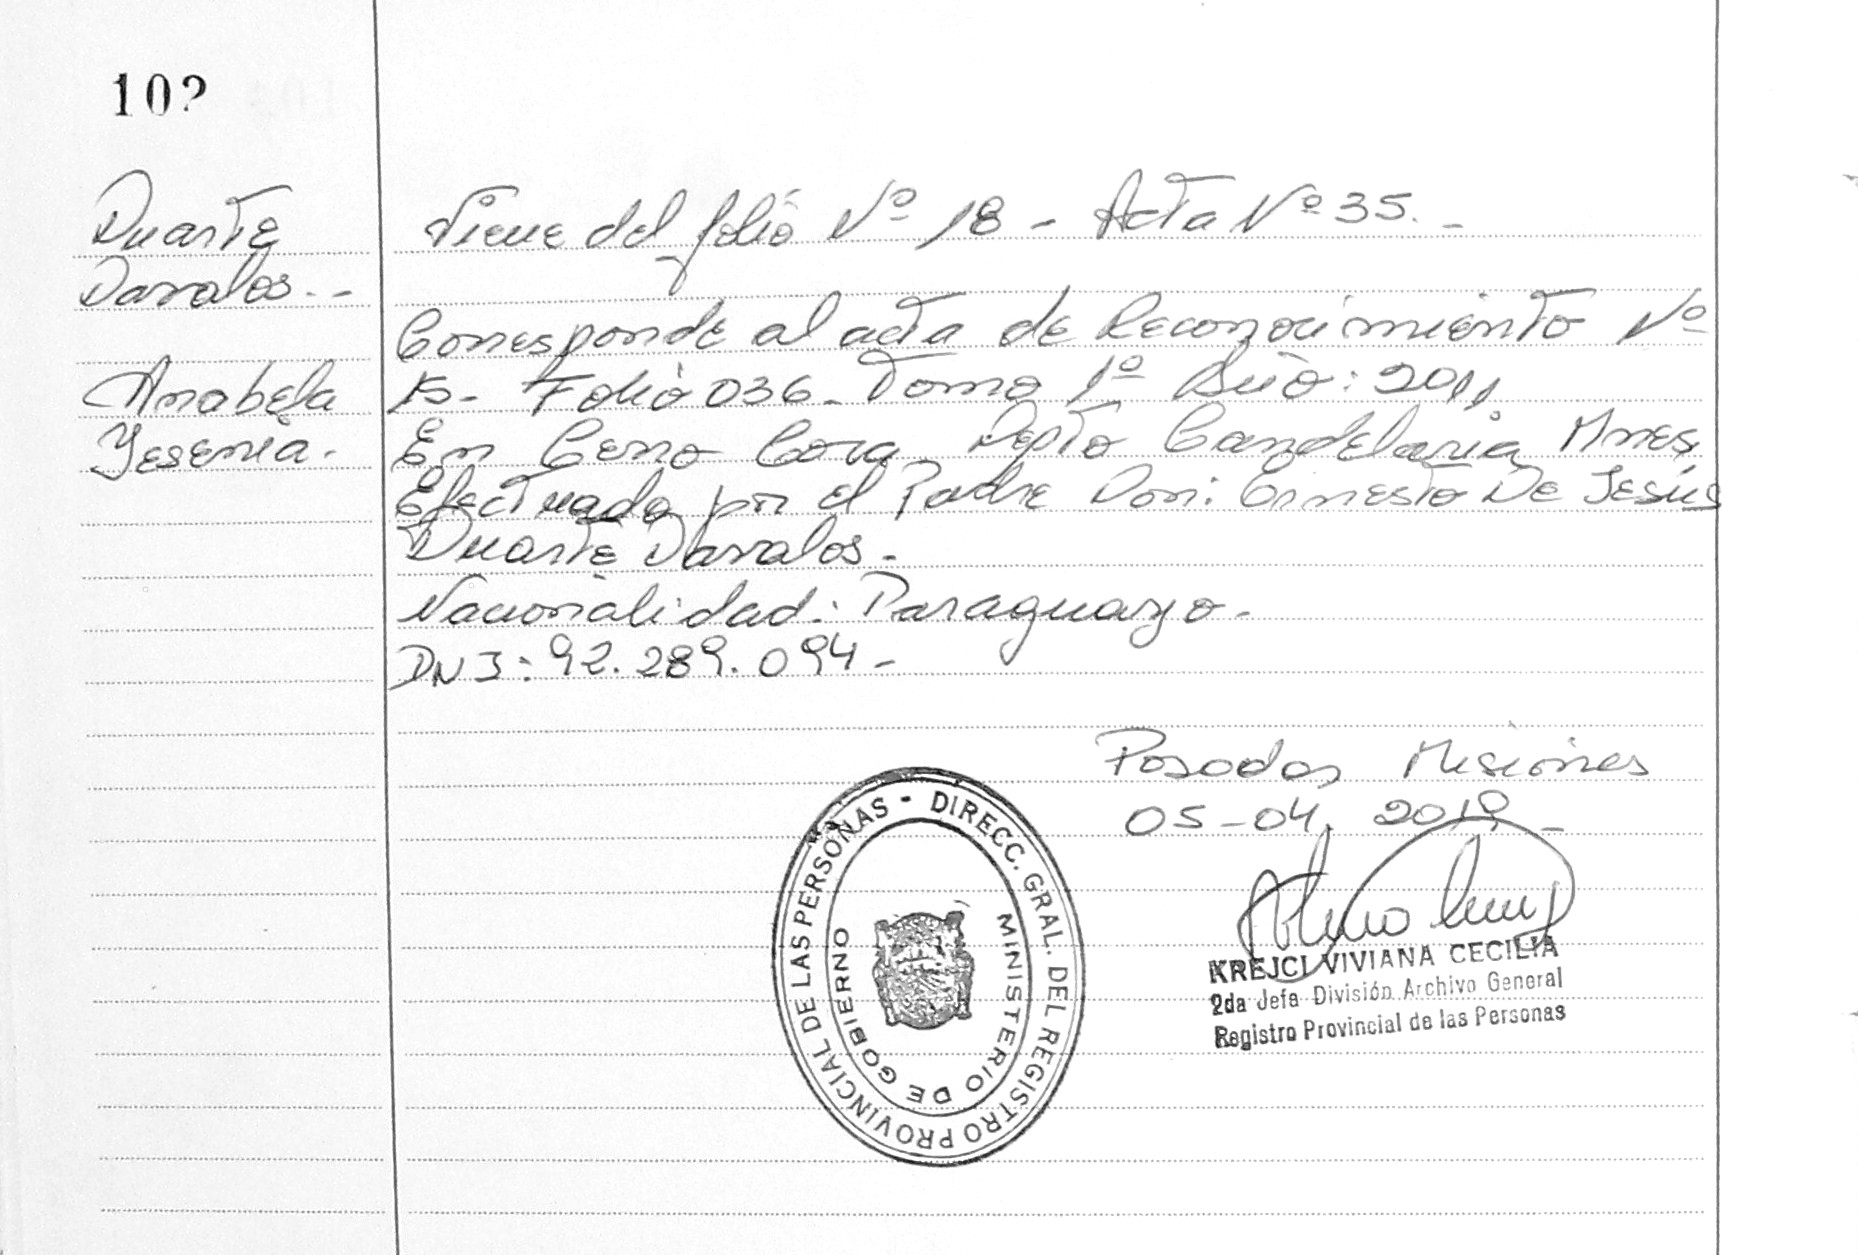 102
Duarte
Davalos. -
Anabela
Yesenia.
Viene del folio Nº 18 - Acta Nº 35. -
Corresponde al acta de Reconocimiento Nº
15 - Folio 036 - Tomo 1º Año: 2011
En Cerro Cora Depto Candelaria, Mnes,
Efectuado por el Padre Don: Ernesto De Jesús
Duarte Davalos -
Nacionalidad: Paraguayo -
DNI: 92.289.094 -
Posadas Misiones
05-04. 2018 -
DIRECC. GRAL. DEL REGISTRO PROVINCIAL DE LAS PERSONAS -
MINISTERIO DE GOBIERNO
KREJCI VIVIANA CECILIA
2da Jefa División Archivo General
Registro Provincial de las Personas